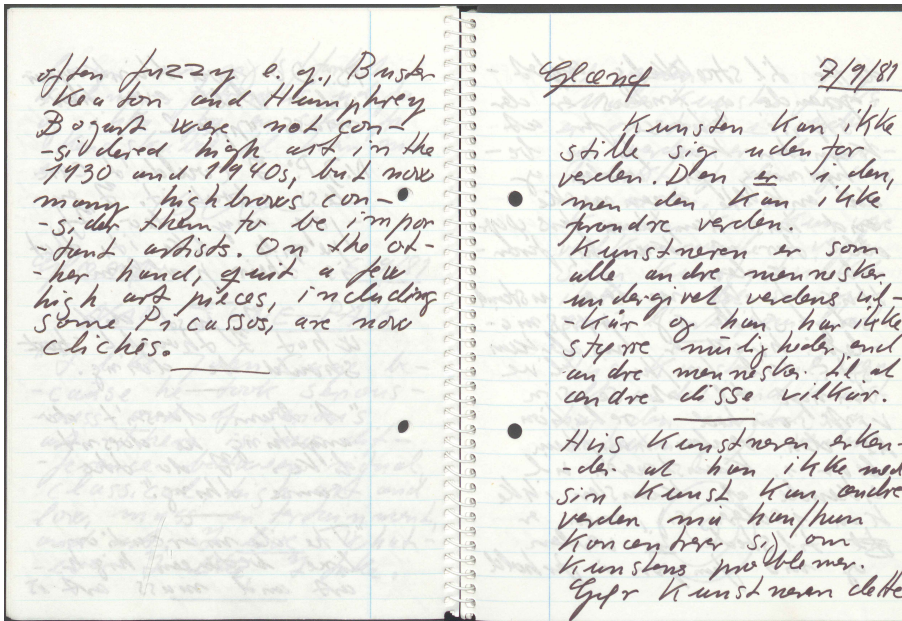 often fuzzy e.g., Buster
Keaton and Humphrey
Bogart were not con-
-sidered high art in the
1930 and 1940s, but now
many highbrows con-
-sider them to be impor
-tant artists. On the ot-
-her hand, quit a few
high art pieces, including
some Picassos, are now
clichés.
Glænø 7/9/81
Kunsten kan ikke
stille sig udenfor
verden. Den er i den,
men den kan ikke
forandre verden.
Kunstneren er som
alle andre mennesker
undergivet verdens vil-
-kår og han har ikke
større muligheder end
andre mennesker til at
ændre disse vilkår.
Hvis kunstneren erken-
-der at han ikke med
sin kunst kan ændre
verden må han/hun
koncentrere sig om
kunstens problemer.
Gør kunstneren dette